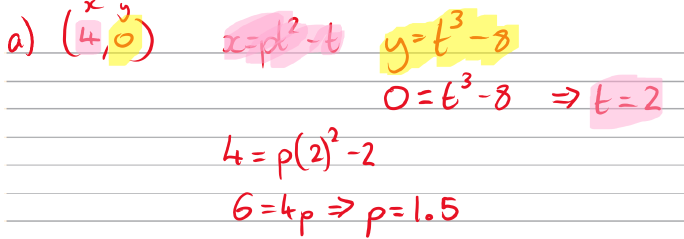 x y
a) (4,0) x=pt²-t y=t³-8
0=t³-8 ⇒ t=2
4=p(2)²-2
6=4p ⇒ p=1.5